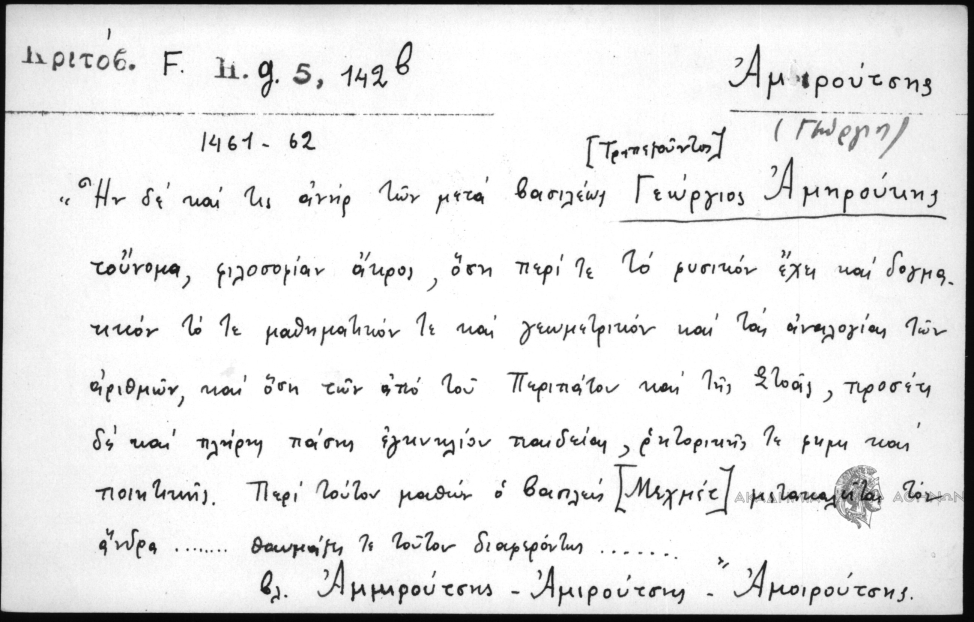 Κριτόβ. F. H. g. 5, 142 β
Ἀμιρούτσης
(Γεώργιος)
1461 - 62
[Τραπεζοῦντος]
“Ἦν δέ καί τις ἀνήρ τῶν μετά βασιλέως Γεώργιος Ἀμηρούκης
τοὔνομα, φιλοσοφίαν ἄκρος, ὅση περί τε τό φυσικόν ἔχει καί δογμα-
τικόν τό τε μαθηματικόν τε καί γεωμετρικόν καί τάς ἀναλογίας τῶν
ἀριθμῶν, καί ὅση τῶν ἀπό τοῦ Περιπάτου καί τῆς Στοᾶς, προσέτι
δέ καί πλήρης πάσης ἐγκυκλίου παιδείας, ῥητορικῆς τε φημι καί
ποιητικῆς. Περί τούτου μαθών ὁ βασιλεύς [Μεχμέτ] μετακαλεῖται τόν
ἄνδρα ........ θαυμάζει τε τοῦτον διαφερόντως ........”
βλ. Ἀμμιρούτσης - Ἀμιρούτσης - Ἀμοιρούτσης.
ΑΚΑΔΗΜΙΑ ΑΘΗΝΩΝ